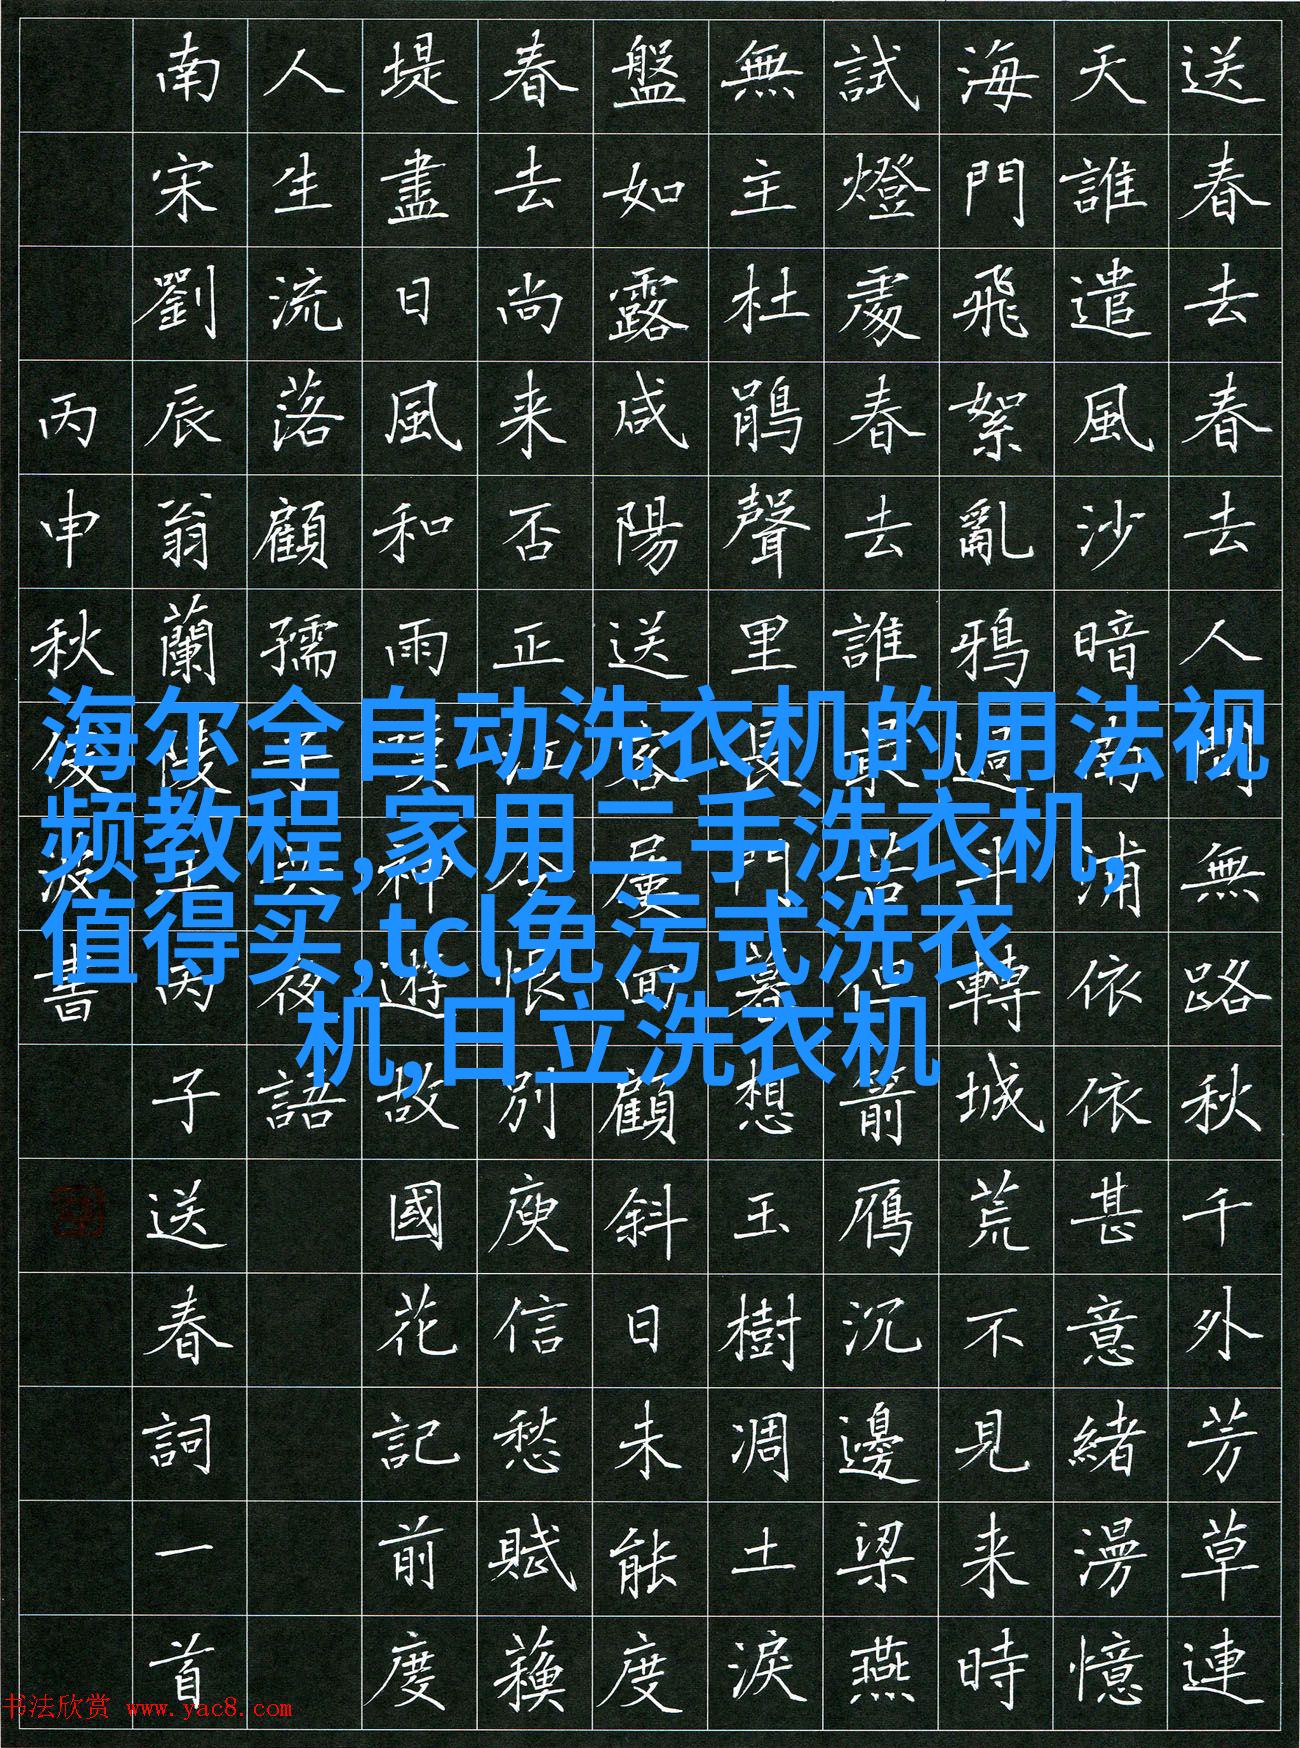 送春去春去人間無路秋千外芳草連
天誰遣風沙暗南浦依依甚意緒漫憶
海門飛絮亂鴉過斗轉城荒不見来時
試燈處春去誰最苦但箭鴈沉邊梁燕
無主杜鵑聲里長門暮想玉樹凋土淚
盤如露咸陽送客屢回顧斜日未能度
春去尚来否正江令恨別庾信愁賦蘓
堤盡日風和雨嘆神遊故國花記前度
人生流落顧孺子共夜語
南宋劉辰翁蘭陵王丙子送春詞一首
丙申秋書
海尔全自动洗衣机的用法视
频教程,家用二手洗衣机,
值得买,tcl免污式洗衣
机,日立洗衣机
书法欣赏 www.yac8.com